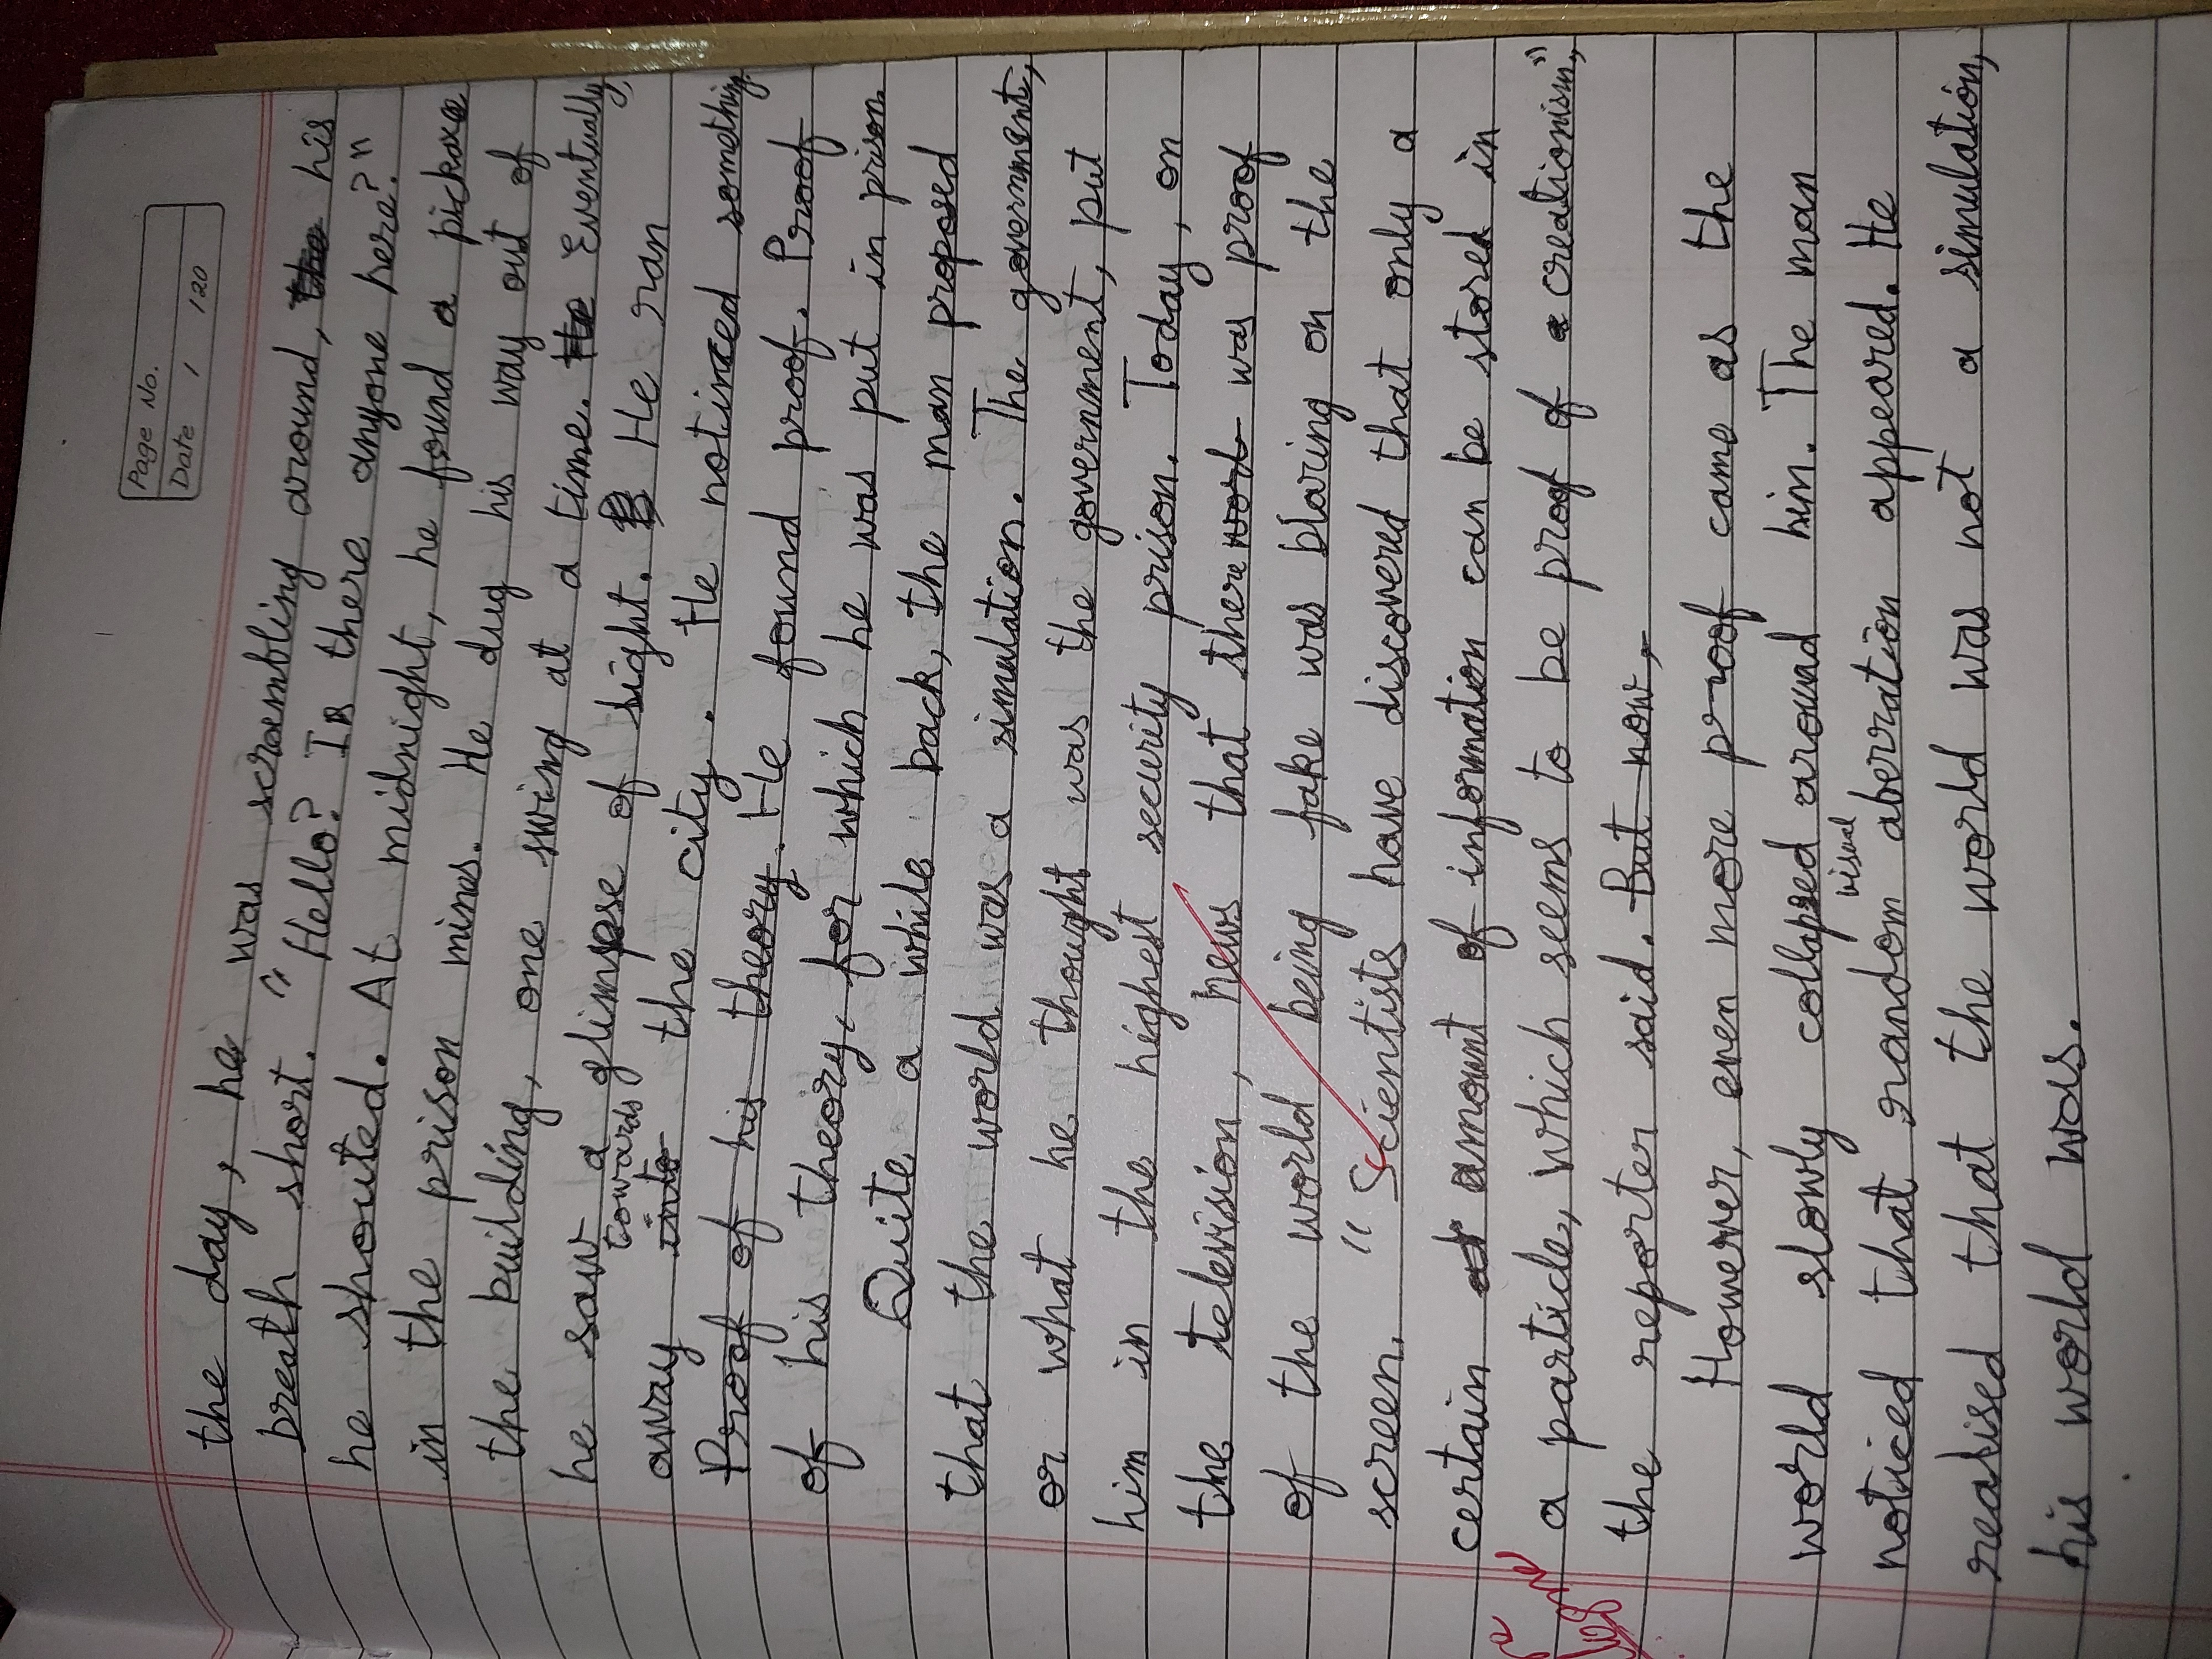 Page No.
Date / /20
the day, he was scrambling around, the his
breath short. "Hello? Is there anyone here?"
he shouted. At midnight, he found a pickaxe
in the prison mines. He dug his way out of
the building, one swing at a time. He Eventually,
he saw a glimpse of light. He ran
towards
away into the city. He notinced something.
Proof of his theory. He found proof. Proof
of his theory, for which he was put in prison.
Quite a while back, the man proposed
that the world was a simulation. The government,
or what he thought was the government, put
him in the highest security prison. Today, on
the television, news that there worl was proof
of the world being fake was blaring on the
screen. "Scientists have discovered that only a
certain amount of information can be stored in
a particle, which seems to be proof of creationism,"
the reporter said. But now,
However, even more proof came as the
world slowly collapsed around him. The man
visual
noticed that random aberration appeared. He
realised that the world was not a simulation,
his world was.